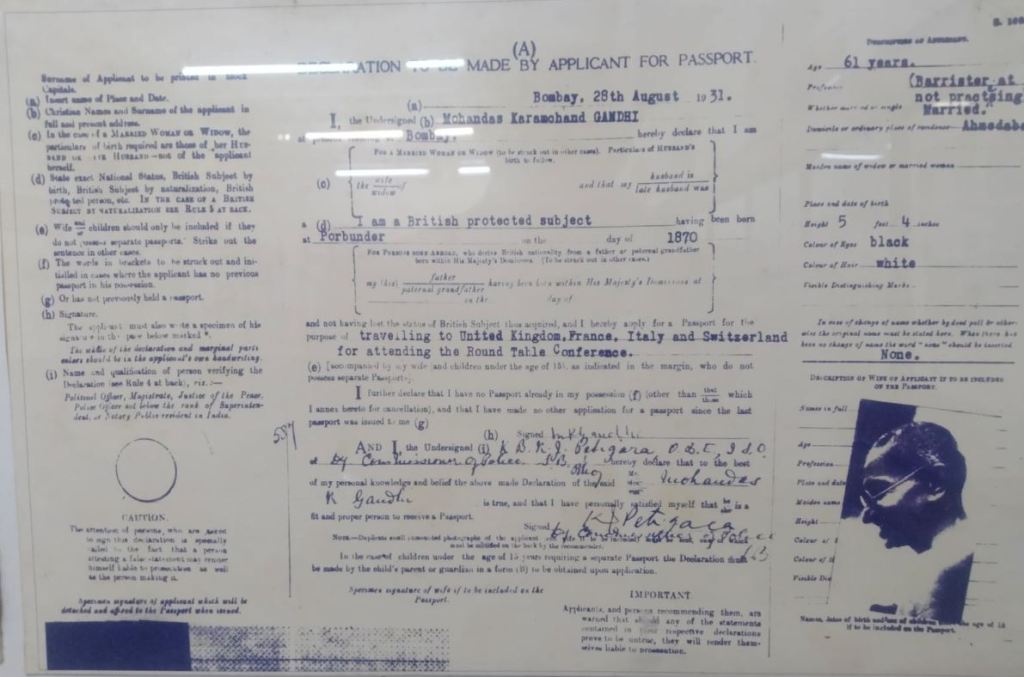 (A)
DECLARATION TO BE MADE BY APPLICANT FOR PASSPORT.
Surname of Applicant to be printed in Block
Capitals.
(a) Insert name of Place and Date.
(b) Christian Names and Surname of the applicant in
full and present address.
(c) In the case of a MARRIED WOMAN OR WIDOW, the
particulars of birth required are those of her HUS-
BAND OR HUSBAND—not of the applicant
herself.
(d) State exact National Status, British Subject by
birth, British Subject by naturalization, British
protected person, etc. IN THE CASE OF A BRITISH
SUBJECT BY NATURALIZATION SEE RULE 5 AT BACK.
(e) Wife and/or children should only be included if they
do not possess separate passports. Strike out the
sentence in other cases.
(f) The words in brackets to be struck out and ini-
tialled in cases where the applicant has no previous
passport in his possession.
(g) Or has not previously held a passport.
(h) Signature.
The applicant must also write a specimen of his
signature in the space below marked *.
The whole of the declaration and marginal parts
should be in the applicant's own handwriting.
(i) Name and qualification of person verifying the
Declaration (see Rule 4 at back), viz.:—
Political Officer, Magistrate, Justice of the Peace,
Police Officer not below the rank of Superinten-
dent, or Notary Public resident in India.
CAUTION.
The attention of persons who are asked
to sign this declaration is specially
called to the fact that a person
attesting a false statement may render
himself liable to prosecution as well
as the person making it.
Specimen signature of applicant which will be
detached and affixed to the Passport when issued.
(a) Bombay, 28th August 1931.
I, the Undersigned (b) Mohandas Karamchand GANDHI
at Bombay. hereby declare that I am
FOR A MARRIED WOMAN OR WIDOW (to be struck out in other cases). Particulars of HUSBAND'S
birth to follow.
(c) the wife/widow of and that my husband is/late husband was
a (d) I am a British protected subject having been born
at Porbunder on the day of 1870
FOR PERSONS BORN ABROAD, who derive British nationality from a father or paternal grandfather
born within His Majesty's Dominions. (To be struck out in other cases.)
my (his) father/paternal grandfather having been born within His Majesty's Dominions at
on the day of
and not having lost the status of British Subject thus acquired, and I hereby apply for a Passport for the
purpose of travelling to United Kingdom,France, Italy and Switzerland
for attending the Round Table Conference.
(e) [accompanied by my wife and children under the age of 15], as indicated in the margin, who do not
possess separate Passports.
I further declare that I have no Passport already in my possession (f) (other than that/those which
I annex hereto for cancellation), and that I have made no other application for a passport since the last
passport was issued to me (g)
(h) Signed MKGandhi
587
AND I, the Undersigned (i) K B. K. J. Petigara O.B.E, I S.O.
at Dy Commissioner of Police S.B. hereby declare that to the best
of my personal knowledge and belief the above made Declaration of the said Mohandas
K Gandhi is true, and that I have personally satisfied myself that he/she is a
fit and proper person to receive a Passport.
Signed K J Petigara
In the case of children under the age of 15 years requiring a separate Passport the Declaration must
be made by the child's parent or guardian in a form (B) to be obtained upon application.
Specimen signature of wife if to be included on the
Passport.
IMPORTANT
Applicants, and persons recommending them, are
warned that should any of the statements
contained in their respective declarations
prove to be untrue, they will render them-
selves liable to prosecution.
DESCRIPTION OF APPLICANT.
Age 61 years.
Profession (Barrister at
not practising
Whether married or single Married.
Domicile or ordinary place of residence Ahmedaba
Maiden name of widow or married woman
Place and date of birth
Height 5 feet 4 inches
Colour of Eyes black
Colour of Hair white
Visible Distinguishing Marks
In case of change of name whether by deed poll or other-
wise the original name must be stated here. When there has
been no change of name the word "none" should be inserted
None.
DESCRIPTION OF WIFE OF APPLICANT IF TO BE INCLUDED
ON THE PASSPORT.
Names in full
Age
Profession
Place and date
Maiden name
Height
Colour of
Colour of
Visible Dis
Names, dates of birth and sex of children under the age of 15
if to be included on the Passport.